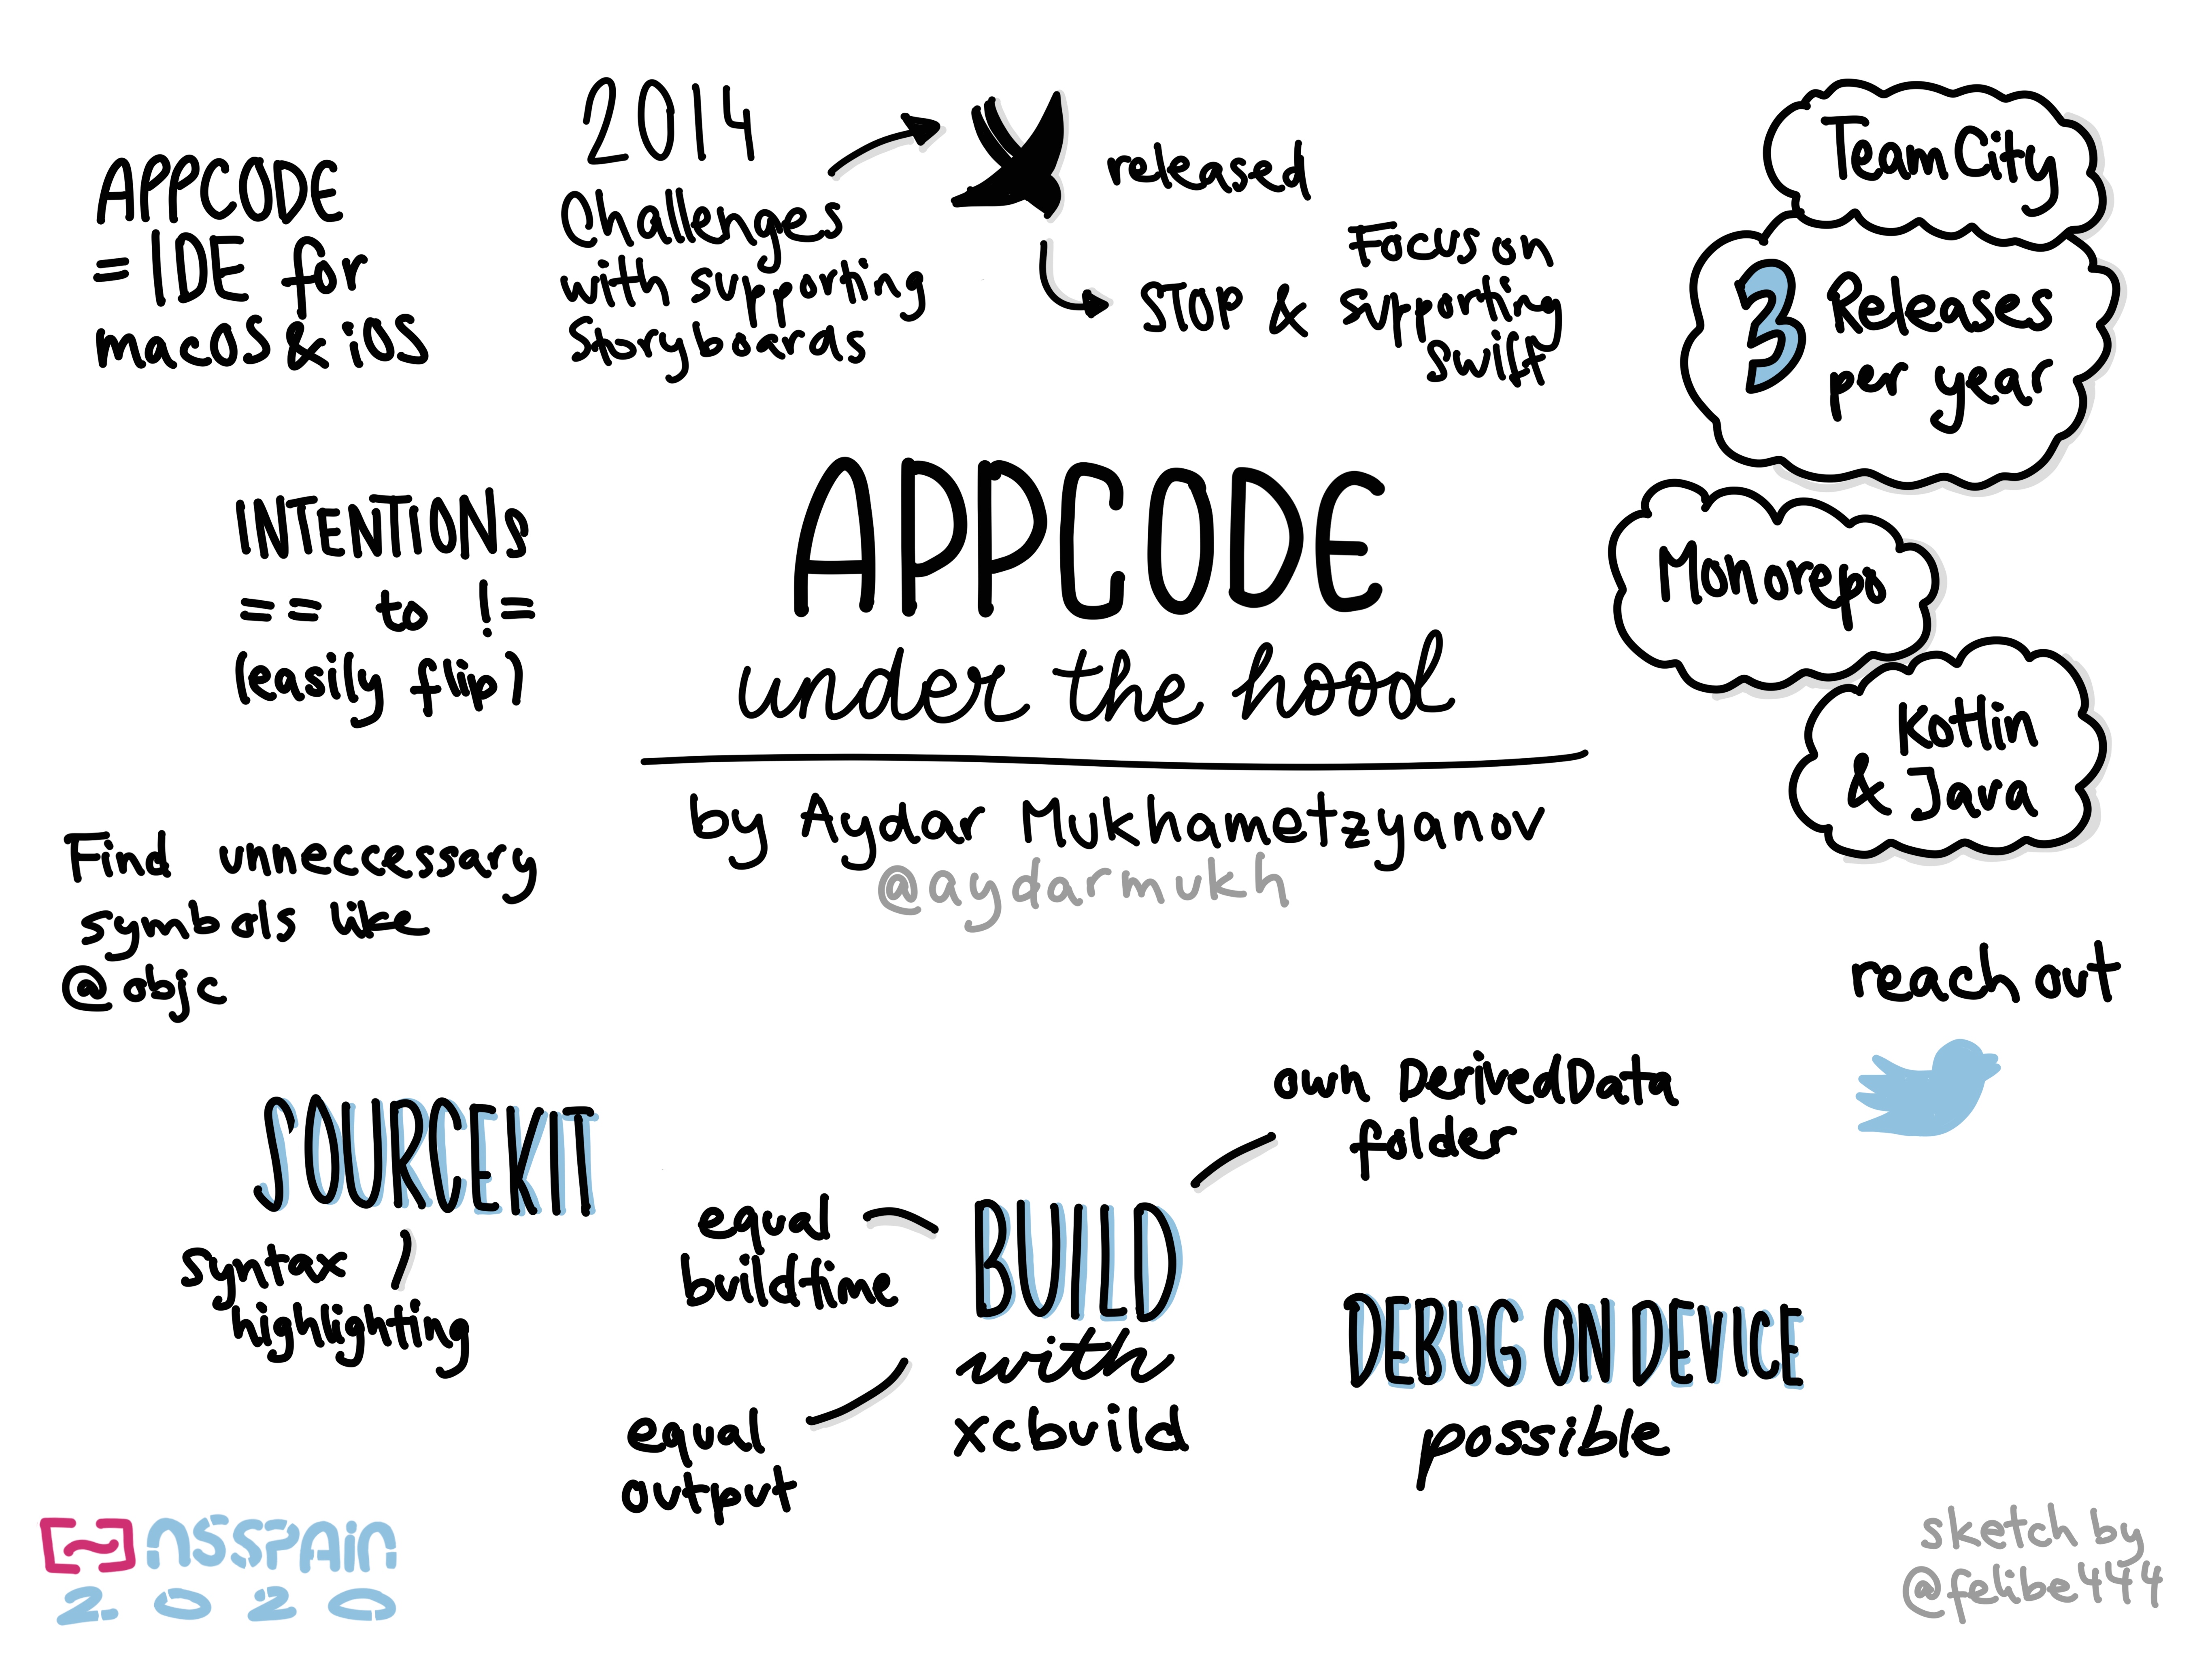 APPCODE
= IDE for
macOS & iOS
2014
Challenges
with supporting
Storyboards
released
STOP &
Focus on
supporting
Swift
TeamCity
3 Releases
per year
Monorepo
Kotlin
& Java
INTENTIONS
== to !=
(easily flip)
APPCODE
under the hood
by Aydar Mukhametzyanov
@aydarmukh
Find unneccessary
symbols like
@objc
reach out
SOURCEKIT
syntax
highlighting
equal
buildtime
equal
output
BUILD
with
xcbuild
own DerivedData
folder
DEBUG ON DEVICE
possible
NSSPAIN
2020
sketch by
@felibe444